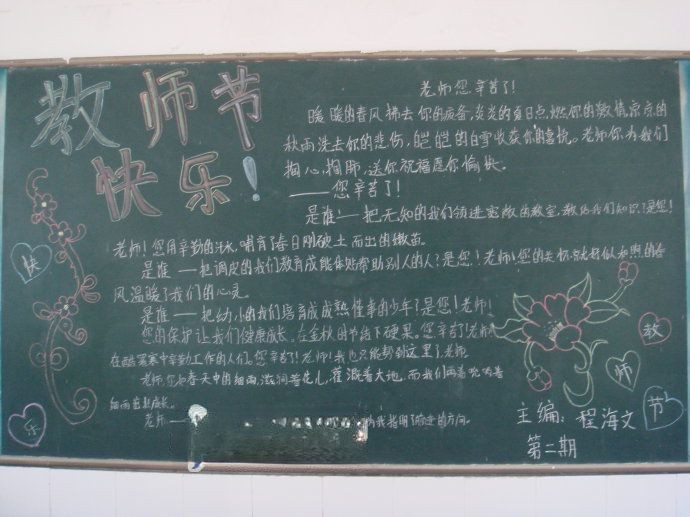 教师节
快乐!
老师您辛苦了!
暖暖的春风拂去你的疲备,炎炎的夏日点燃你的激情,凉凉的
秋雨洗去你的悲伤,皑皑的白雪收获你的喜悦。老师你为我们
掏心,掏肺,送你祝福愿你愉快。
——您辛苦了!
是谁——把无知的我们领进宽敞的教室,教给我们知识?是您!
老师!您用辛勤的汗水,哺育了春日刚破土而出的嫩苗。
是谁——把调皮的我们教育成能体贴帮助别人的人?是您!老师!您的关怀就好似和煦的春
风温暖了我们的心灵。
是谁——把幼小的我们培育成成熟懂事的少年?是您!老师!
您的保护让我们健康成长。在金秋时节结下硕果。您辛苦了!老师
在酷 寒中辛勤工作的人们。您辛苦了!老师!我也只能帮到这里了,老师
老师,您如春天中的细雨,滋润着花儿,灌溉着大地,而我们两者吮吸着
细雨茁壮成长。
老师—— 为我指明了前进的方向。
快
乐
教
师
节
主编:程海文
第二期